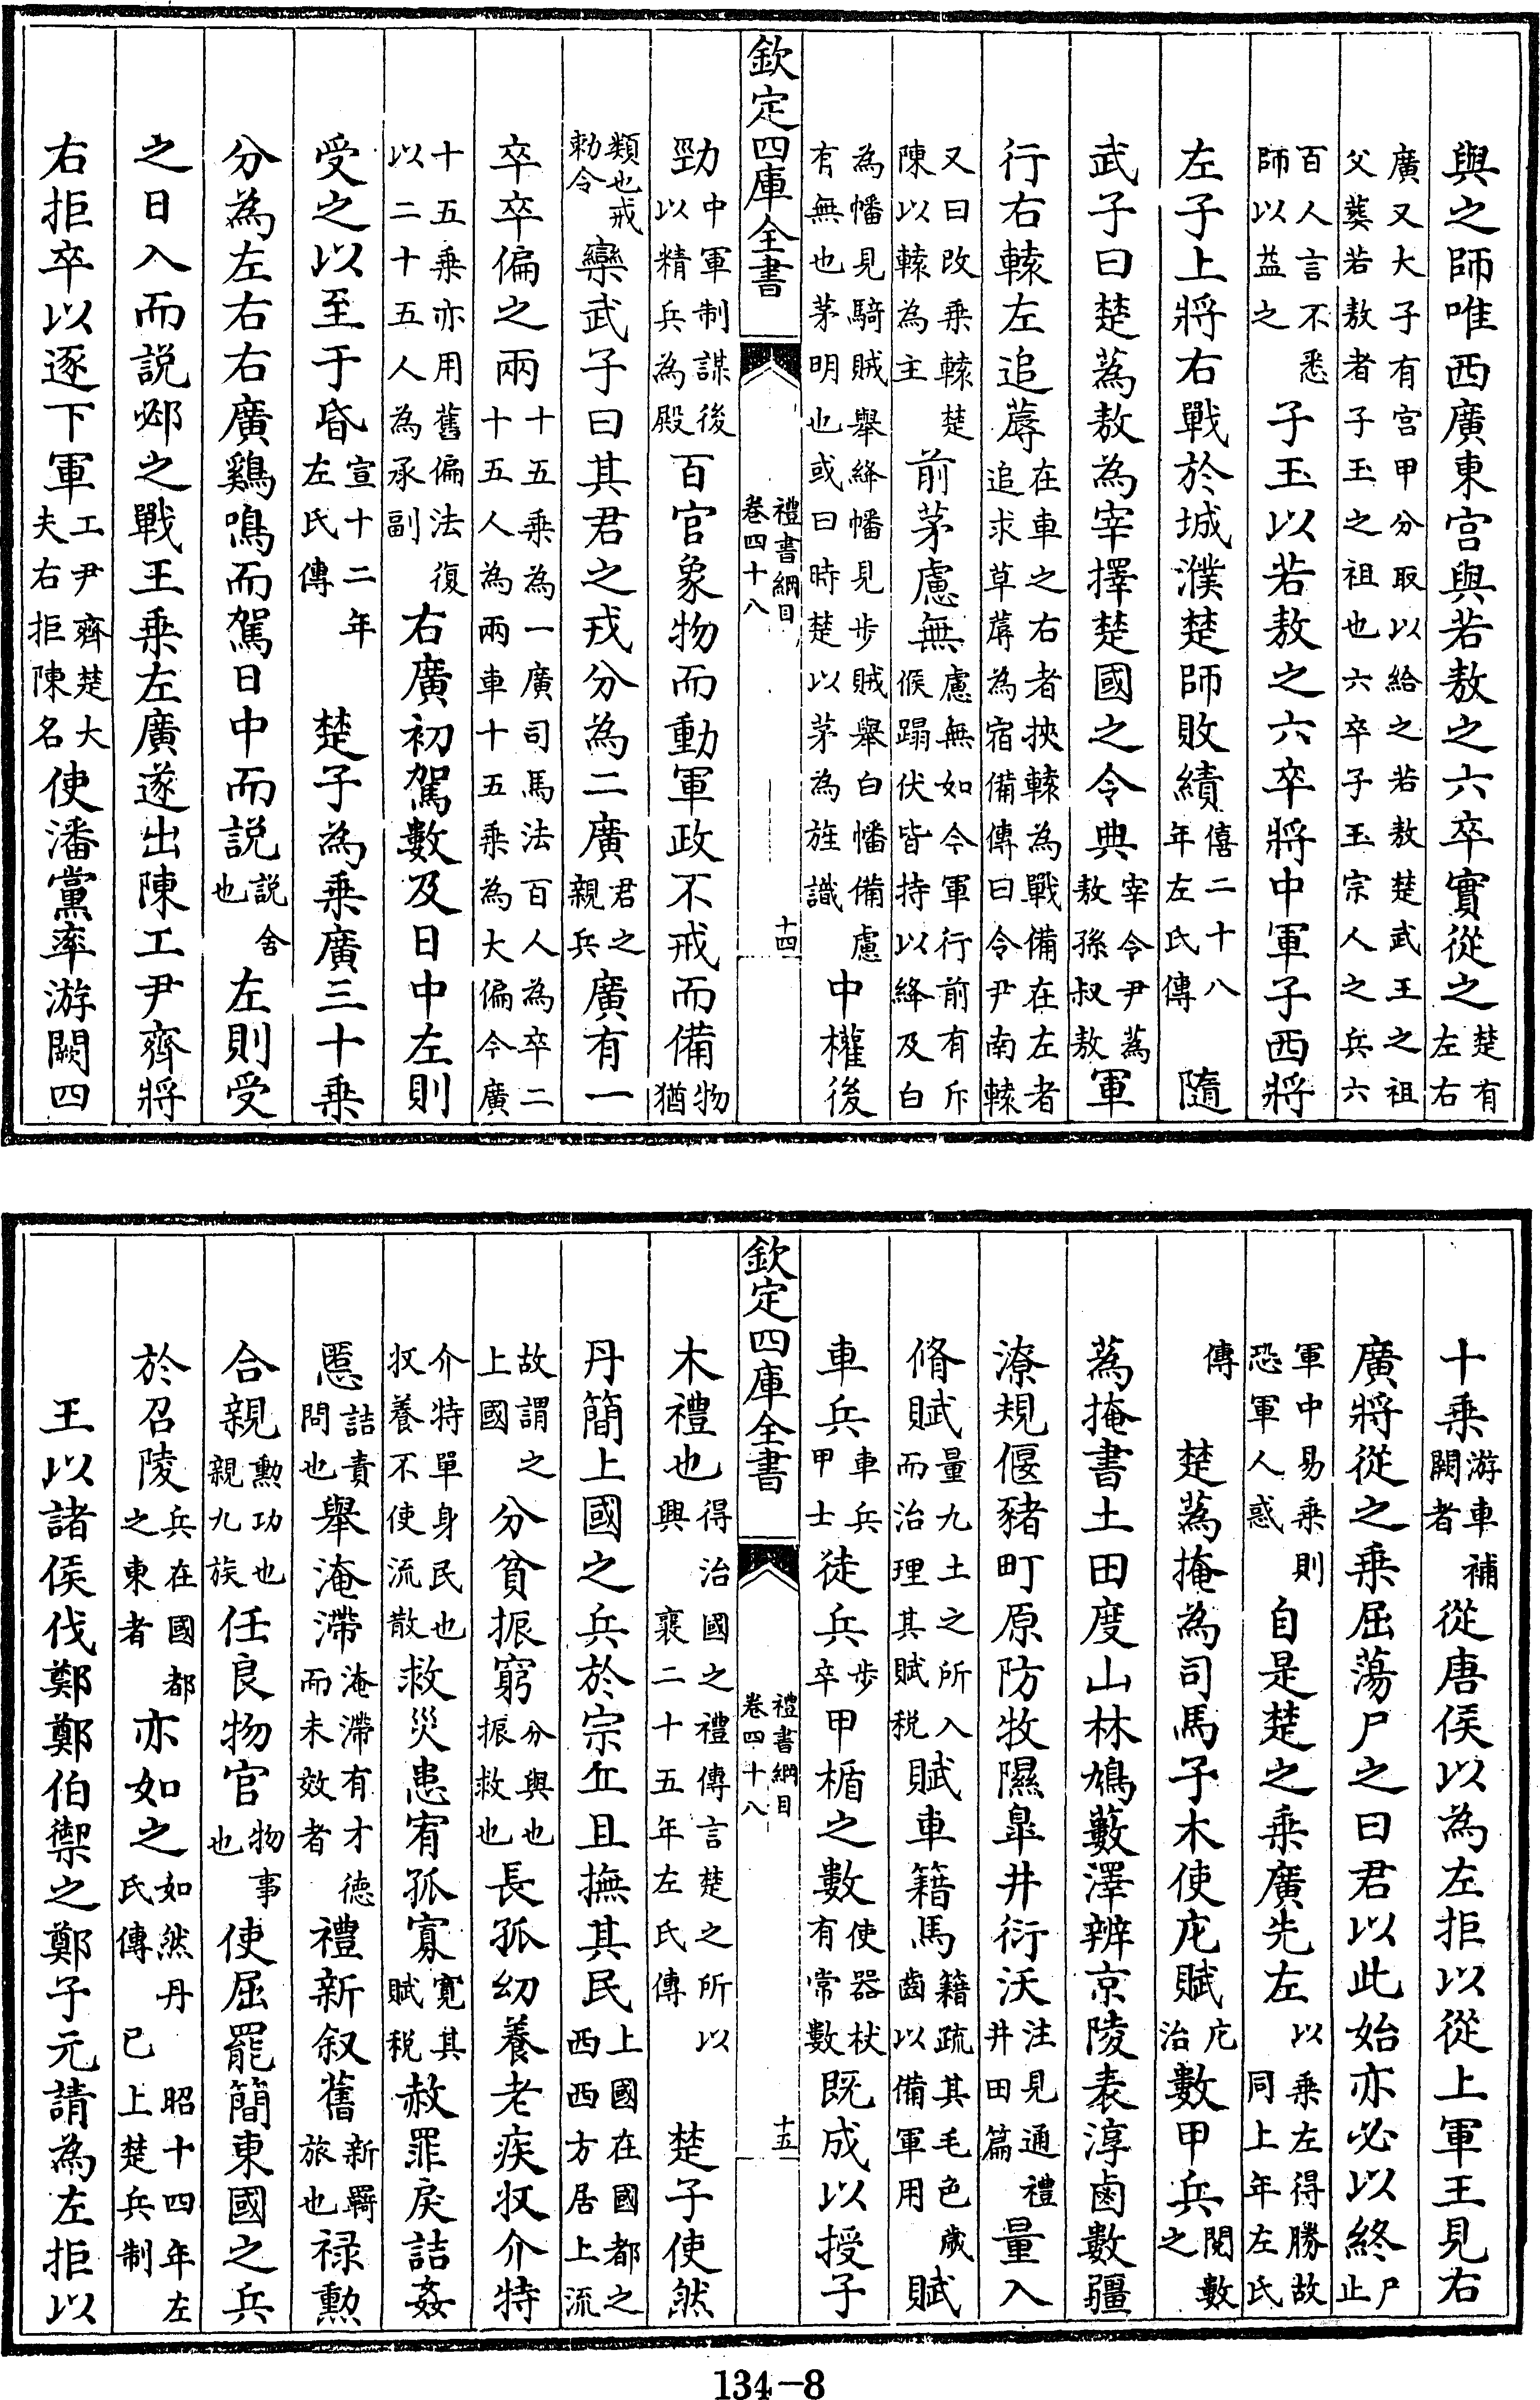 與之師唯西廣東宮與若敖之六卒實從之楚有左右
廣又大子有宮甲分取以給之若敖楚武王之祖父葬若敖者子玉之祖也六卒子玉宗人之兵六
百人言不悉師以益之子玉以若敖之六卒將中軍子西將
左子上將右戰於城濮楚師敗績僖二十八年左氏傳隨
武子曰楚蒍敖為宰擇楚國之令典宰令尹蒍敖孫叔敖軍
行右轅左追蓐在車之右者挾轅為戰備在左者追求草蓐為宿備傳曰令尹南轅
又曰改乘轅楚陳以轅為主前茅慮無慮無如今軍行前有斥候蹋伏皆持以絳及白
為幡見騎賊舉絳幡見步賊舉白幡備慮有無也茅明也或曰時楚以茅為旌識中權後
欽定四庫全書 禮書綱目 卷四十八 十四
勁中軍制謀後以精兵為殿百官象物而動軍政不戒而備物猶
類也戒勅令欒武子曰其君之戎分為二廣君之親兵廣有一
卒卒偏之兩十五乘為一廣司馬法百人為卒二十五人為兩車十五乘為大偏今廣
十五乘亦用舊偏法復以二十五人為承副右廣初駕數及日中左則
受之以至于昏宣十二年左氏傳楚子為乘廣三十乘
分為左右右廣鷄鳴而駕日中而說說舍也左則受
之日入而說邲之戰王乘左廣遂出陳工尹齊將
右拒卒以逐下軍工尹齊楚大夫右拒陳名使潘黨率游闕四
十乘游車補闕者從唐侯以為左拒以從上軍王見右
廣將從之乘屈蕩尸之曰君以此始亦必以終尸止
軍中易乘則恐軍人惑自是楚之乘廣先左以乘左得勝故同上年左氏
傳楚蒍掩為司馬子木使庀賦庀治數甲兵閱數之
蒍掩書土田度山林鳩藪澤辨京陵表淳鹵數疆
潦規偃豬町原防牧隰臯井衍沃注見通禮井田篇量入
脩賦量九土之所入而治理其賦稅賦車籍馬籍疏其毛色歲齒以備軍用賦
車兵車兵甲士徒兵步卒甲楯之數使器杖有常數既成以授子
欽定四庫全書 禮書綱目 卷四十八 十五
木禮也得治國之禮傳言楚之所以興襄二十五年左氏傳楚子使然
丹簡上國之兵於宗丘且撫其民上國在國都之西西方居上流
故謂之上國分貧振窮分與也振救也長孤幼養老疾収介特
介特單身民也収養不使流散救災患宥孤寡寬其賦稅赦罪戾詰姦
慝詰責問也舉淹滯淹滯有才德而未效者禮新叙舊新羇旅也禄勲
合親勲功也親九族任良物官物事也使屈罷簡東國之兵
於召陵兵在國都之東者亦如之如然丹昭十四年左氏傳已上楚兵制
王以諸侯伐鄭鄭伯禦之鄭子元請為左拒以
134-8